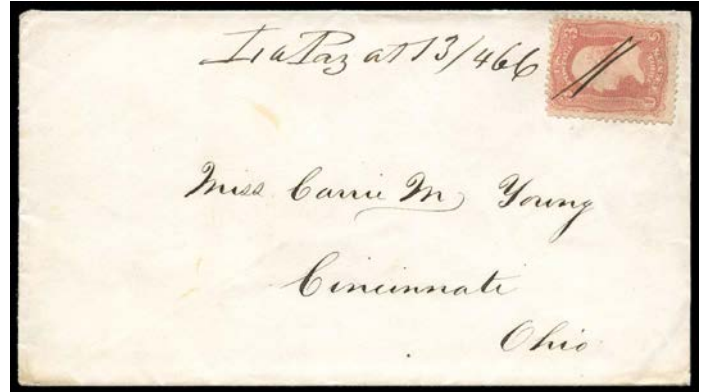 La Paz at 13/466
Miss Carrie M Young
Cincinnati
Ohio